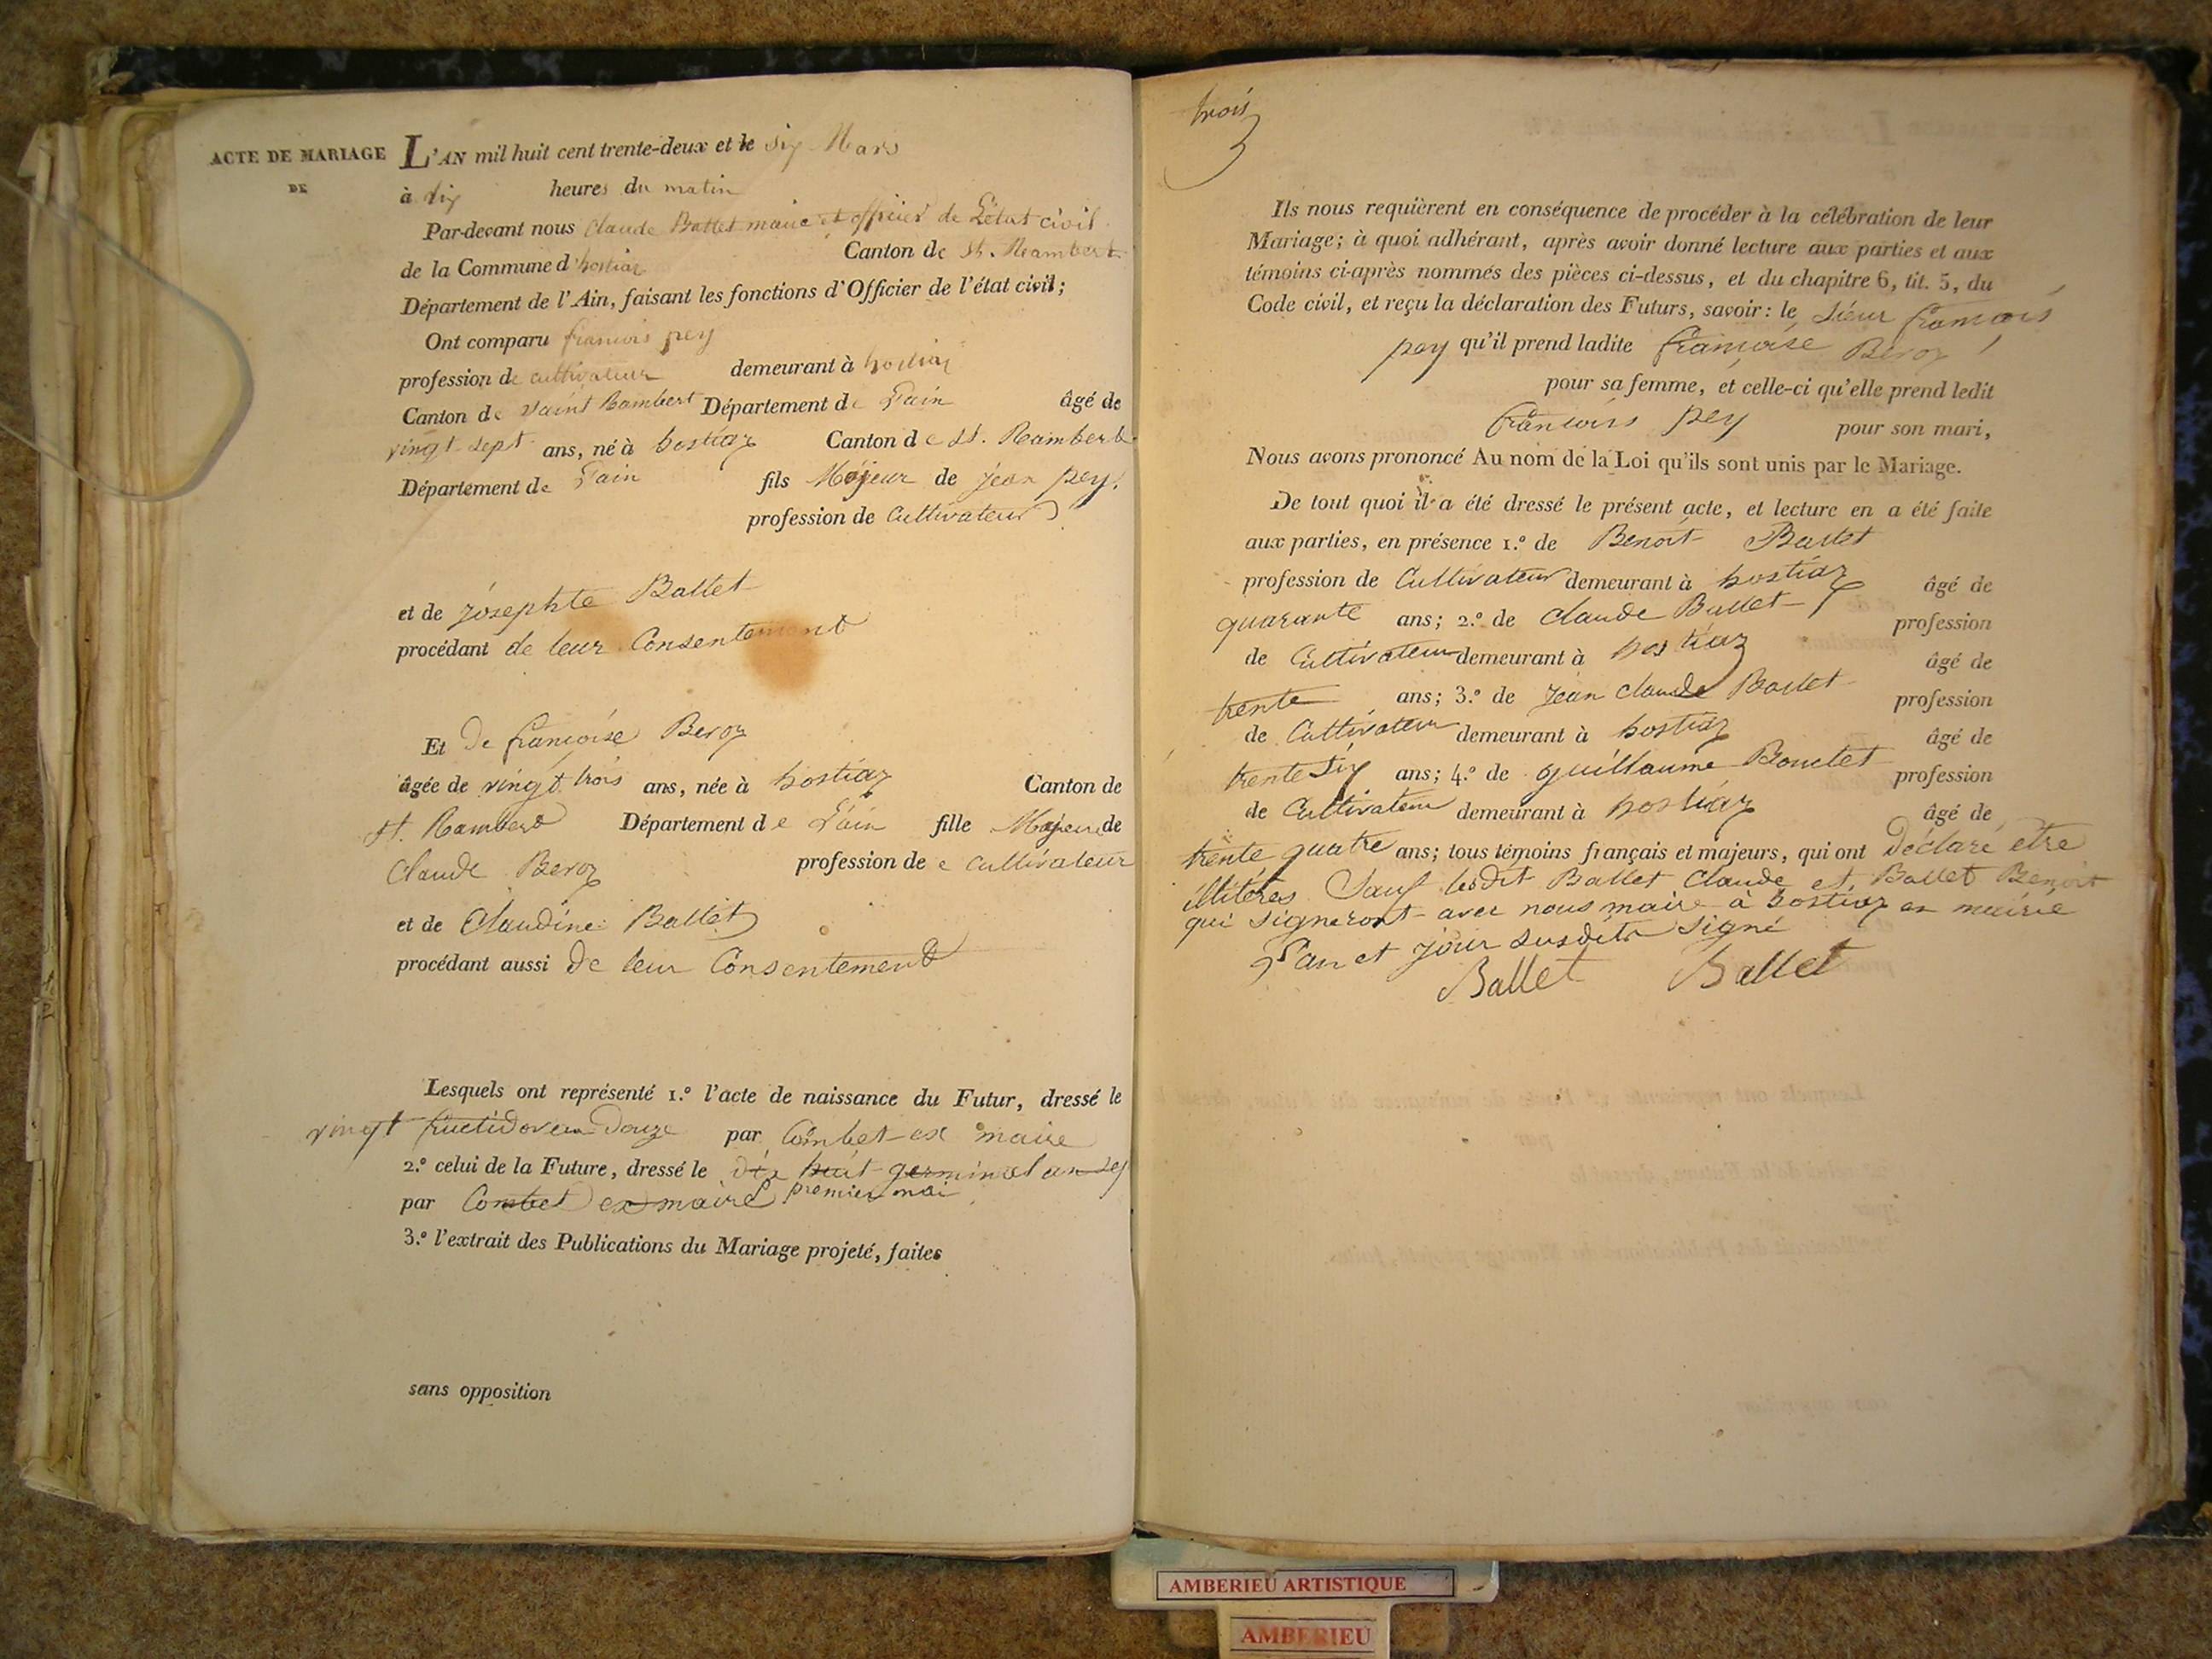 ACTE DE MARIAGE
DE
L'AN mil huit cent trente-deux et le six Mars
à dix heures du matin
Par-devant nous Claude Ballet maire et officier de L'état civil
de la Commune d'hostiaz Canton de St. Rambert
Département de l'Ain, faisant les fonctions d'Officier de l'état civil;
Ont comparu francois pey
profession de cultivateur demeurant à hostiaz
Canton de Saint Rambert Département de L'ain âgé de
vingt sept ans, né à hostiaz Canton de St. Rambert
Département de L'ain fils Majeur de jean pey.
profession de Cultivateur
et de josephte Ballet
procédant de leur Consentement
Et De francoise Beroz
âgée de vingt trois ans, née à hostiaz Canton de
St. Rambert Département de L'ain fille Majeure de
Claude Beroz profession de e cultivateur
et de Claudine Ballet
procédant aussi De leur Consentement
Lesquels ont représenté 1.º l'acte de naissance du Futur, dressé le
vingt fructidor an Douze par Combet ex maire
2.º celui de la Future, dressé le dix huit germinal an
par Combet ex maire premier mai
3.º l'extrait des Publications du Mariage projeté, faites
sans opposition
trois
3
Ils nous requièrent en conséquence de procéder à la célébration de leur
Mariage; à quoi adhérant, après avoir donné lecture aux parties et aux
témoins ci-après nommés des pièces ci-dessus, et du chapitre 6, tit. 5, du
Code civil, et reçu la déclaration des Futurs, savoir: le Sieur francois
pey qu'il prend ladite francoise Beroz
pour sa femme, et celle-ci qu'elle prend ledit
francois pey pour son mari,
Nous avons prononcé Au nom de la Loi qu'ils sont unis par le Mariage.
De tout quoi il a été dressé le présent acte, et lecture en a été faite
aux parties, en présence 1.º de Benoit Ballet
profession de Cultivateur demeurant à hostiaz âgé de
quarante ans; 2.º de Claude Ballet profession
de Cultivateur demeurant à hostiaz âgé de
trente ans; 3.º de jean claude Ballet profession
de Cultivateur demeurant à hostiaz âgé de
trente Six ans; 4.º de guillaume Bouctet profession
de Cultivateur demeurant à hostiaz âgé de
trente quatre ans; tous témoins français et majeurs, qui ont Déclaré etre
illitéres Sauf lesdit Ballet Claude et Ballet Benoit
qui Signeront avec nous maire à hostiaz en mairie
L'an et jour susdits Signé
Ballet Ballet
AMBERIEU ARTISTIQUE
AMBERIEU